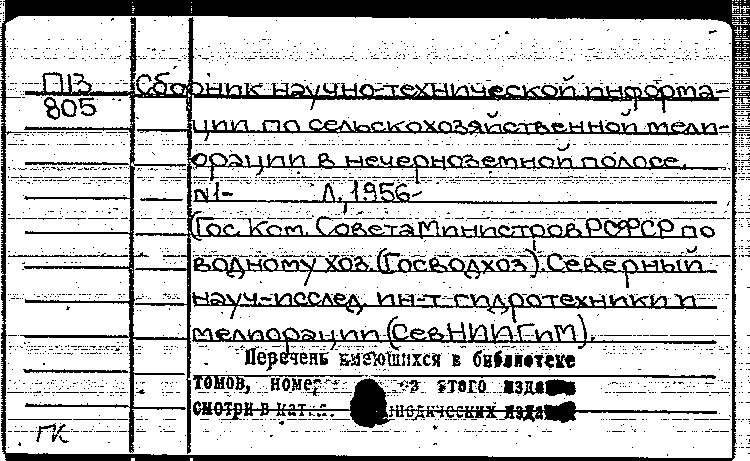 П13 Сборник научно-технической информа-
805 ции по сельскохозяйственной мели-
орации в нечерноземной полосе.
N1- Л., 1956-
(Гос. Ком. Совета Министров РСФСР по
водному хоз. (Госводхоз). Северный
науч.-исслед. ин-т гидротехники и
мелиорации (СевНИИГиМ).
Перечень имеющихся в библиотеке
томов, этого
смотри в
ГК